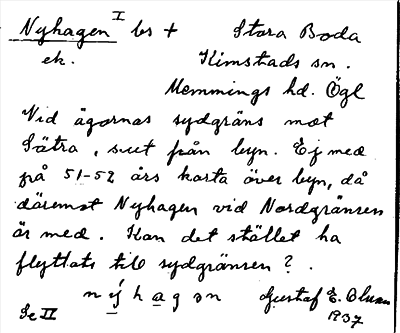 Nyhagen I bs + Stora Boda
ek. Kimstads sn.
Memmings hd. Ögl
Vid ägornas sydgräns mot
Sätra, sv.ut från byn. Ej med
på 51-52 års karta över byn, då
däremot Nyhagen vid Nordgränsen
är med. Kan det stället ha
flyttats till sydgränsen?.
n ý h a g ən Gustaf E. Olsson
Se II 1937